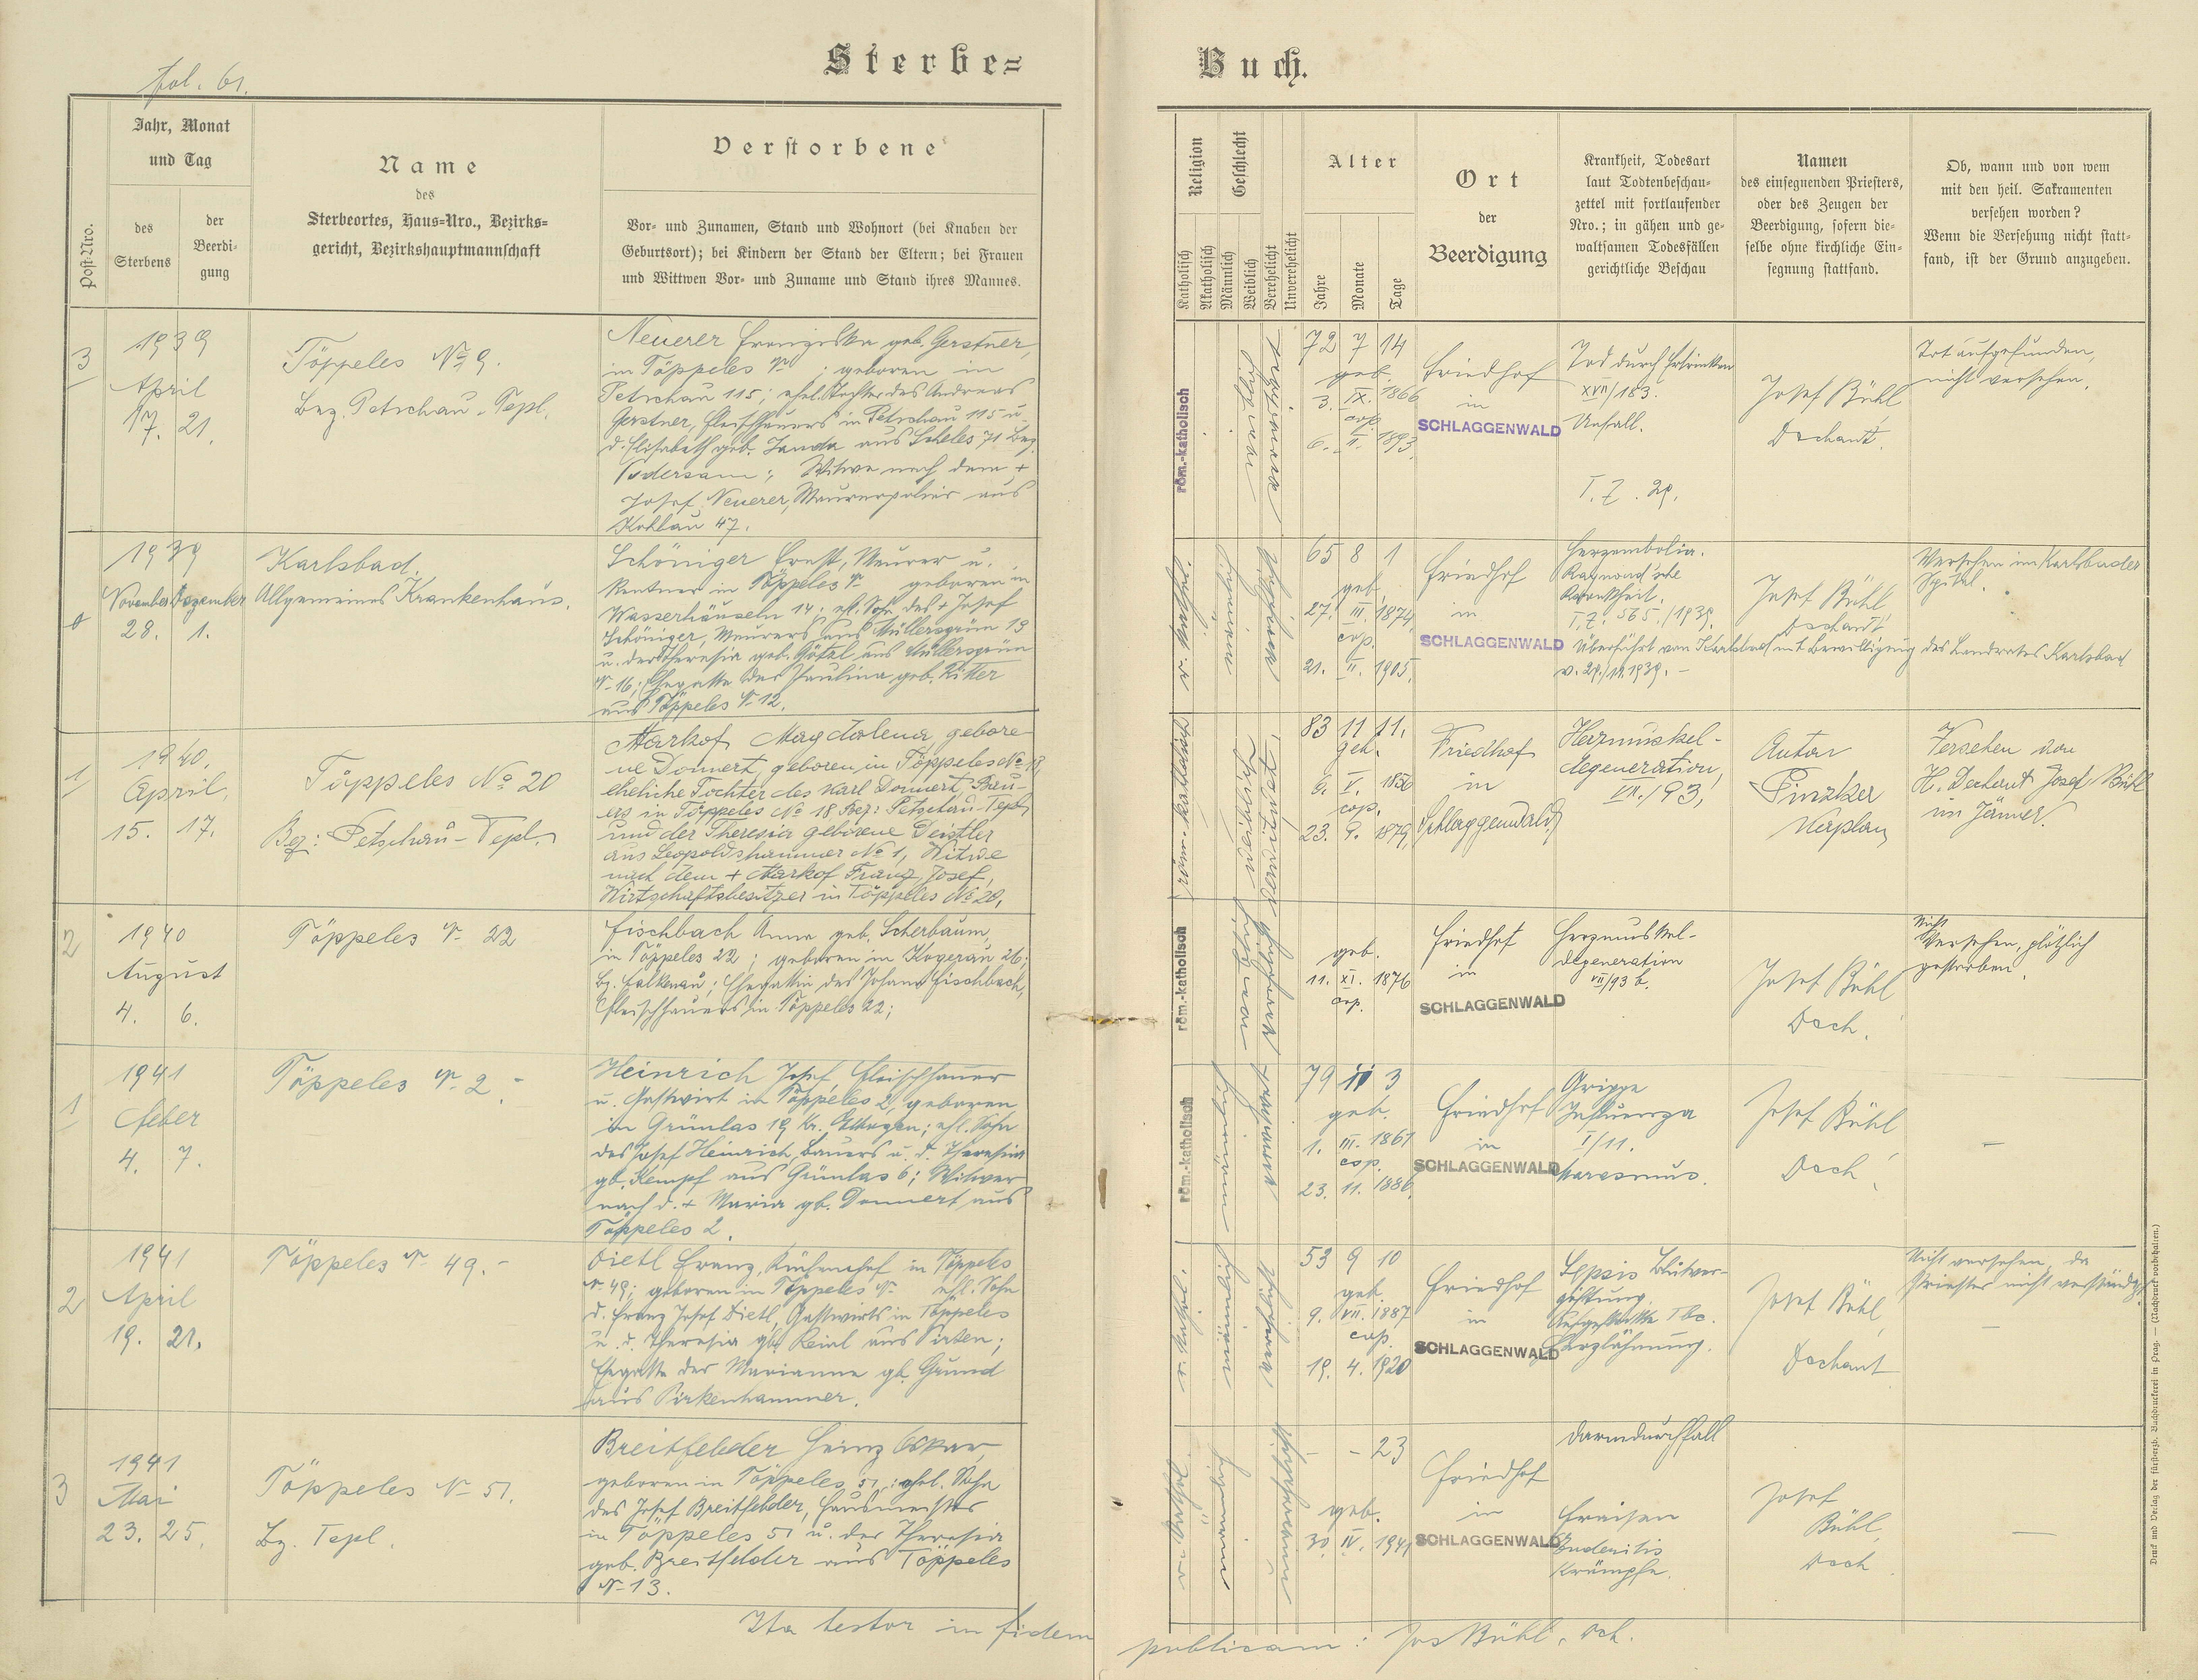 fol. 61.
Sterbe=
Buch.
Post-Nro.
Jahr, Monat
und Tag
des
Sterbens
der
Beerdi-
gung
Name
des
Sterbeortes, Haus=Nro., Bezirks=
gericht, Bezirkshauptmannschaft
Verstorbene
Vor- und Zunamen, Stand und Wohnort (bei Knaben der
Geburtsort); bei Kindern der Stand der Eltern; bei Frauen
und Wittwen Vor- und Zuname und Stand ihres Mannes.
Religion
Katholisch
Akatholisch
Geschlecht
Männlich
Weiblich
Verehelicht
Unverehelicht
Alter
Jahre
Monate
Tage
Ort
der
Beerdigung
Krankheit, Todesart
laut Todtenbeschau-
zettel mit fortlaufender
Nro.; in gähen und ge-
waltsamen Todesfällen
gerichtliche Beschau
Namen
des einsegnenden Priesters,
oder des Zeugen der
Beerdigung, sofern die-
selbe ohne kirchliche Ein-
segnung stattfand.
Ob, wann und von wem
mit den heil. Sakramenten
versehen worden?
Wenn die Versehung nicht statt-
fand, ist der Grund anzugeben.
3
1939
April
17. 21.
Töppeles No 9.
Bez. Petschau-Tepl.
Neuerer Franziska geb. Gerstner,
in Töppeles No ; geboren in
Petschau 115; ehel. Tochter des Andreas
Gerstner, Fleischhauers in Petschau 115 u.
d. Elisabeth geb. Janda aus Scheles 71 Bez.
Podersam; Witwe nach dem +
Josef Neuerer, Maurerpolier aus
Kohlau 47.
röm.-katholisch
weiblich
verwitwet
72 7 14
geb.
3. IX. 1866
cop.
6. II. 1893
Friedhof
in
SCHLAGGENWALD
Tod durch Ertrinken
XVII/183.
Unfall.
T. Z. 29.
Josef Bühl
Dechant.
Tot aufgefunden,
nicht versehen.
1939
November Dezember
28. 1.
Karlsbad
Allgemeines Krankenhaus.
Schöniger Ernst, Maurer u.
Rentner in Töppeles No geboren in
Wasserhäuseln 14; ehl. Sohn des + Josef
Schöniger, Maurers aus Müllersgrün 13
u. der Theresia geb. Götzl aus Müllersgrün
No 16; Ehegatte der Paulina geb. Ritter
aus Töppeles No 12.
r. kathol.
männlich
verehelicht
65 8 1
geb.
27. III. 1874
cop.
21. II. 1905.
Friedhof
in
SCHLAGGENWALD
Herzembolia.
Raynaud'sche
Krankheit.
T. Z. 565./1939.
Überführt von Karlsbad mit Bewilligung des Landrates Karlsbad
v. 29./11.1939.-
Josef Bühl
Dechant
Versehen im Karlsbader
Spital.
1
1940.
April,
15. 17.
Töppeles No 20
Bez: Petschau-Tepl.
Markof Magdalena gebore
ne Donnert, geboren in Töppeles No 18,
eheliche Tochter des Karl Donnert, Bau-
ers in Töppeles No 18, Bez: Petschau-Tepl,
und der Theresia geborene Deistler
aus Leopoldshammer No 1, Witwe
nach dem + Markof Franz Josef,
Wirtschaftsbesitzer in Töppeles No 20,
röm.-katholisch
weiblich
verwitwet
83 11 11.
geb.
6. V. 1856
cop.
23. 9. 1879,
Friedhof
in
Schlaggenwald
Herzmuskel-
degeneration,
VII./93,
Anton
Kaplan
Versehen von
H. Dechant Josef Bühl
im Jänner.
2
1940
August
4. 6.
Töppeles No 22
Fischbach Anna geb. Scherbaum,
in Töppeles 22; geboren in Kogerau 26;
Bz. Falkenau; Ehegattin des Johann Fischbach,
Fleischhauers in Töppeles 22;
röm.-katholisch
weiblich
verehelicht
geb.
11. XI. 1876
cop.
Friedhof
in
SCHLAGGENWALD
Herzmuskel-
degeneration
VII/93 b.
Josef Bühl
Dech.
Nicht
Versehen, plötzlich
gestorben.
1
1941
Feber
4. 7.
Töppeles No 2.-
Heinrich Josef, Fleischhauer
u. Gastwirt in Töppeles 2, geboren
in Grünlas 19 Kr. Elbogen; ehl. Sohn
des Josef Heinrich, Bauers u. d. Theresia
gb. Kempf aus Grünlas 6; Witwer
nach d. + Maria gb. Donnert aus
Töppeles 2.
röm.-katholisch
männlich
verwitwet
79 11 3
geb.
1. III. 1861
cop.
23. 11. 1886.
Friedhof
in
SCHLAGGENWALD
Grippe
Influenza
I/11.
Marasmus.
Josef Bühl
Dech.
-
2
1941
April
19. 21.
Töppeles No 49.-
Dietl Franz, Küchenchef in Töppeles
No 49; geboren in Töppeles No ehl. Sohn
d. Franz Josef Dietl, Gastwirts in Töppeles
u. d. Theresia gb. Reinl aus Pirten;
Ehegatte der Marianne gb. Grund
aus Pirkenhammer.
r. kathol.
männlich
verehelicht
53 9 10
geb.
9. VII. 1887
cop.
19. 4. 1920
Friedhof
in
SCHLAGGENWALD
Sepsis Blutver-
giftung.
Tbc.
Herzlähmung.
Josef Bühl
Dechant
Nicht versehen, da
Priester nicht verständigt.
-
3
1941
Mai
23. 25.
Töppeles No 51.
Bz. Tepl.
Breitfelder Heinz Oskar,
geboren in Töppeles 51; ehel. Sohn
des Josef Breitfelder, Hausmeister
in Töppeles 51 u. der Theresia
geb. Breitfelder aus Töppeles
No 13.
r. kathol.
männlich
unverehelicht
- - 23
geb.
30. IV. 1941
Friedhof
in
SCHLAGGENWALD
Darmdurchfall
Fraisen
Krämpfe.
Josef
Bühl,
Dech
-
Ita testor in fidem
publicam: Jos Bühl, Dch.
Druck und Verlag der fürsterzb. Buchdruckerei in Prag. — (Nachdruck vorbehalten.)